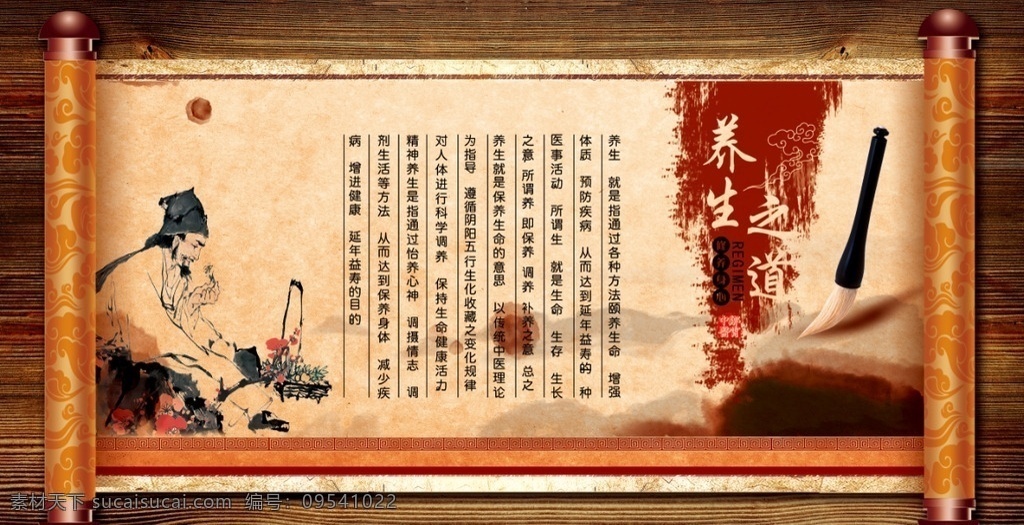 养生之道
REGIMEN
养生 就是指通过各种方法颐养生命 增强
体质 预防疾病 从而达到延年益寿的 种
医事活动 所谓生 就是生命 生存 生长
之意 所谓养 即保养 调养 补养之意 总之
养生就是保养生命的意思 以传统中医理论
为指导 遵循阴阳五行生化收藏之变化规律
对人体进行科学调养 保持生命健康活力
精神养生是指通过怡养心神 调摄情志 调
剂生活等方法 从而达到保养身体 减少疾
病 增进健康 延年益寿的目的
素材天下 sucaisucai.com 编号：09541022